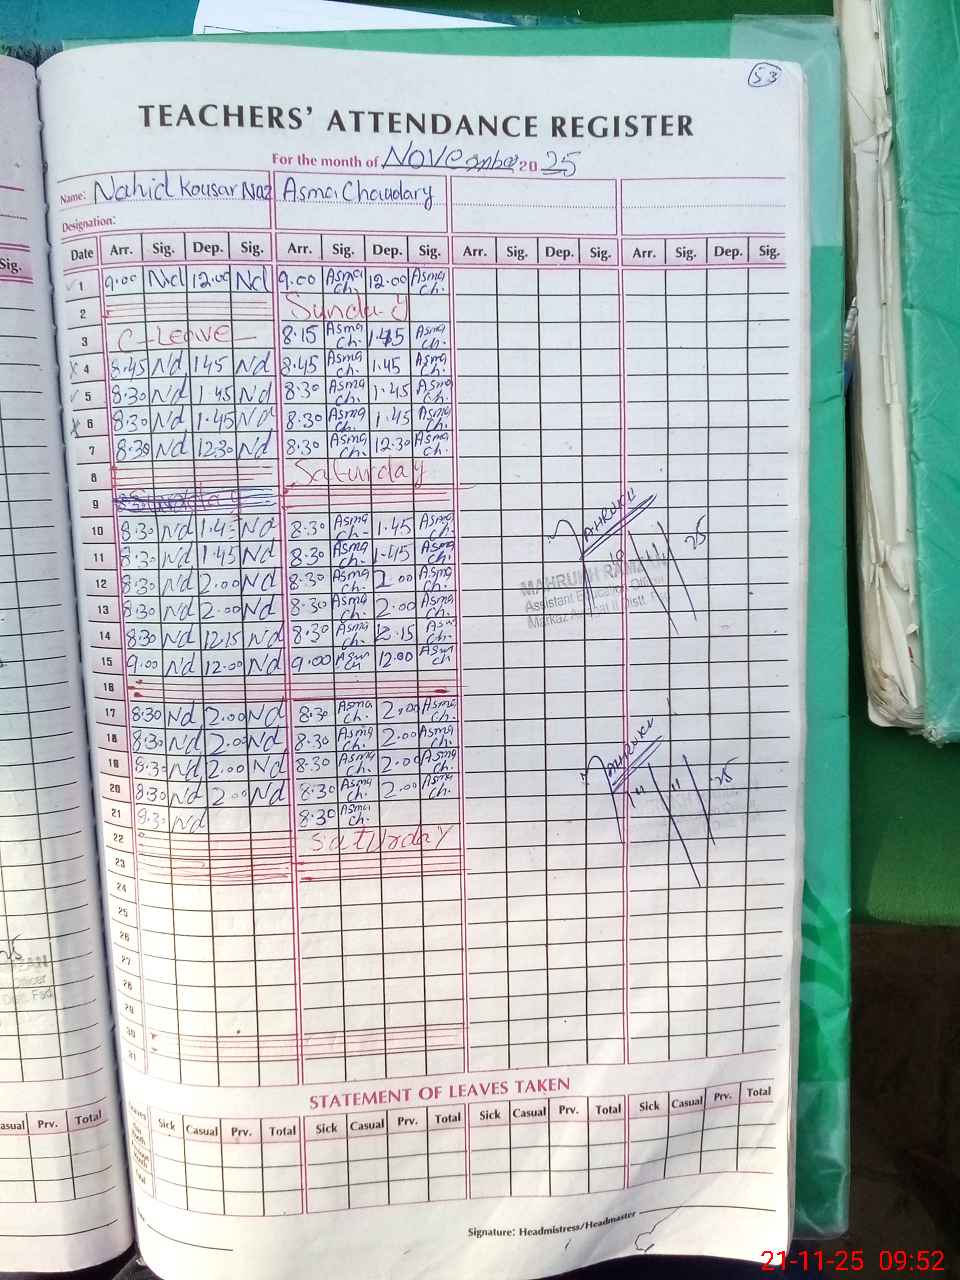 53
TEACHERS' ATTENDANCE REGISTER
For the month of November 2025
Name: Nahid Kousar Naz Asma Chaudary
Designation:
Date Arr. Sig. Dep. Sig. Arr. Sig. Dep. Sig. Arr. Sig. Dep. Sig. Arr. Sig. Dep. Sig.
1 9.00 Nd 12.00 Nd 9.00 Asma Ch. 12.00 Asma Ch.
2 Sunday
3 C-Leave 8.15 Asma Ch. 1.45 Asma Ch.
4 8.45 Nd 1.45 Nd 8.45 Asma Ch. 1.45 Asma Ch.
5 8.30 Nd 1.45 Nd 8.30 Asma Ch. 1.45 Asma Ch.
6 8.30 Nd 1.45 Nd 8.30 Asma Ch. 1.45 Asma Ch.
7 8.30 Nd 12.30 Nd 8.30 Asma Ch. 12.30 Asma Ch.
8 Saturday
9
10 8.30 Nd 1.45 Nd 8.30 Asma Ch. 1.45 Asma Ch.
11 8.30 Nd 1.45 Nd 8.30 Asma Ch. 1.45 Asma Ch.
12 8.30 Nd 2.00 Nd 8.30 Asma Ch. 2.00 Asma Ch.
13 8.30 Nd 2.00 Nd 8.30 Asma Ch. 2.00 Asma Ch.
14 8.30 Nd 12.15 Nd 8.30 Asma Ch. 12.15 Asm Ch.
15 9.00 Nd 12.00 Nd 9.00 Asm Ch 12.00 Asm Ch
16
17 8.30 Nd 2.00 Nd 8.30 Asma Ch. 2.00 Asma Ch.
18 8.30 Nd 2.00 Nd 8.30 Asma Ch. 2.00 Asma Ch.
19 8.30 Nd 2.00 Nd 8.30 Asma Ch. 2.00 Asma Ch.
20 8.30 Nd 2.00 Nd 8.30 Asma Ch. 2.00 Asma Ch.
21 8.30 Nd 8.30 Asma Ch.
22 Saturday
23
24
25
26
27
28
29
30
31
MAHRUKH
25
MAHRUKH
Assistant Education Officer
Markaz
MAHRUKH
25
STATEMENT OF LEAVES TAKEN
Sick Casual Prv. Total Sick Casual Prv. Total Sick Casual Prv. Total Sick Casual Prv. Total
Signature: Headmistress/Headmaster
Sig.
Officer
Distt. Fsd
Prv. Total
21-11-25 09:52